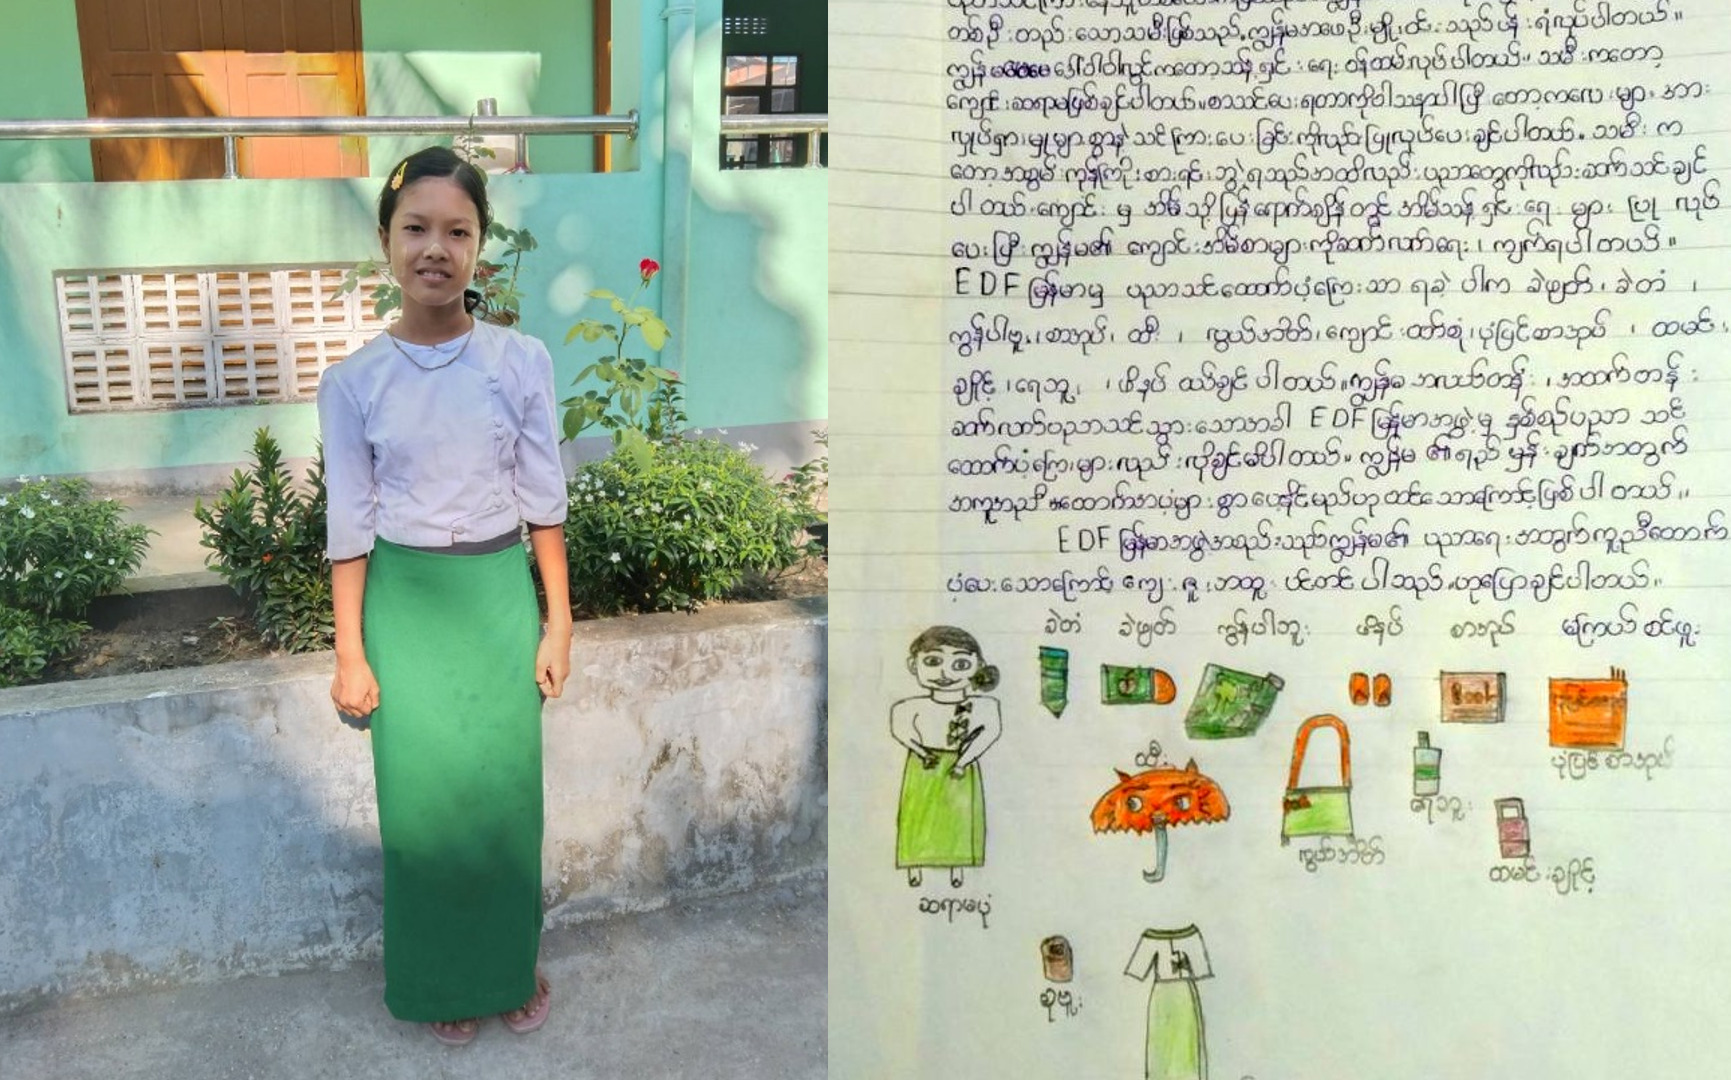 တစ်ဦးတည်းသောသမီးဖြစ်သည်။ ကျွန်မအဖေဦးမျိုးဝင်းသည်ပန်းရံလုပ်ပါတယ်။
ကျွန်မမေမေဒေါ်ဝါဝါလွင်ကတော့သန့်ရှင်းရေးဝန်ထမ်းလုပ်ပါတယ်။ သမီးကတော့
ကျောင်းဆရာမဖြစ်ချင်ပါတယ်။စာသင်ပေးရတာကိုဝါသနာပါပြီးတော့ကလေးများအား
လှုပ်ရှားမှုများစွာနဲ့သင်ကြားပေးခြင်းကိုလည်းပြုလုပ်ပေးချင်ပါတယ်။ သမီးက
တော့အစွမ်းကုန်ကြိုးစားရင်းဘွဲ့ရသည်အထိလည်းပညာတွေကိုလည်းဆက်သင်ချင်
ပါတယ်။ကျောင်းမှ အိမ်သို့ပြန်ရောက်ချိန်တွင် အိမ်သန့်ရှင်းရေးများ ပြုလုပ်
ပေးပြီးကျွန်မ၏ ကျောင်းအိမ်စာများကိုဆက်လက်ရေး၊ ကျက်ရပါတယ်။
EDF မြန်မာမှ ပညာသင်ထောက်ပံ့ကြေးသာ ရခဲ့ပါက ခဲဖျက်၊ ခဲတံ၊
ကွန်ပါဗူး၊စာအုပ်၊ ထီး၊ လွယ်အိတ်၊ကျောင်းဝတ်စုံ၊ပုံပြင်စာအုပ်၊ ထမင်း
ချိုင့်၊ရေဘူး၊ ဖိနပ် ဝယ်ချင်ပါတယ်။ကျွန်မ အလယ်တန်း၊အထက်တန်း
ဆက်လက်ပညာသင်သွားသောအခါ EDF မြန်မာအဖွဲ့မှ နှစ်စဉ်ပညာသင်
ထောက်ပံ့ကြေးများလည်းလိုချင်မိပါတယ်။ ကျွန်မ၏ရည်မှန်းချက်အတွက်
အကူအညီအထောက်အပံ့များစွာပေးနိုင်မည်ဟုထင်သောကြောင့်ဖြစ်ပါတယ်။
EDF မြန်မာအဖွဲ့အစည်းသည်ကျွန်မ၏ ပညာရေးအတွက်ကူညီထောက်
ပံ့ပေးသောကြောင့် ကျေးဇူးအထူးပင်တင်ပါသည်။ဟုပြောချင်ပါတယ်။
ခဲတံ ခဲဖျက် ကွန်ပါဘူး ဖိနပ် စာအုပ်
Book
ထီး
ပုံပြင်စာအုပ်
ရေဘူး
လွယ်အိတ်
ထမင်းချိုင့်
ဆရာမပုံ